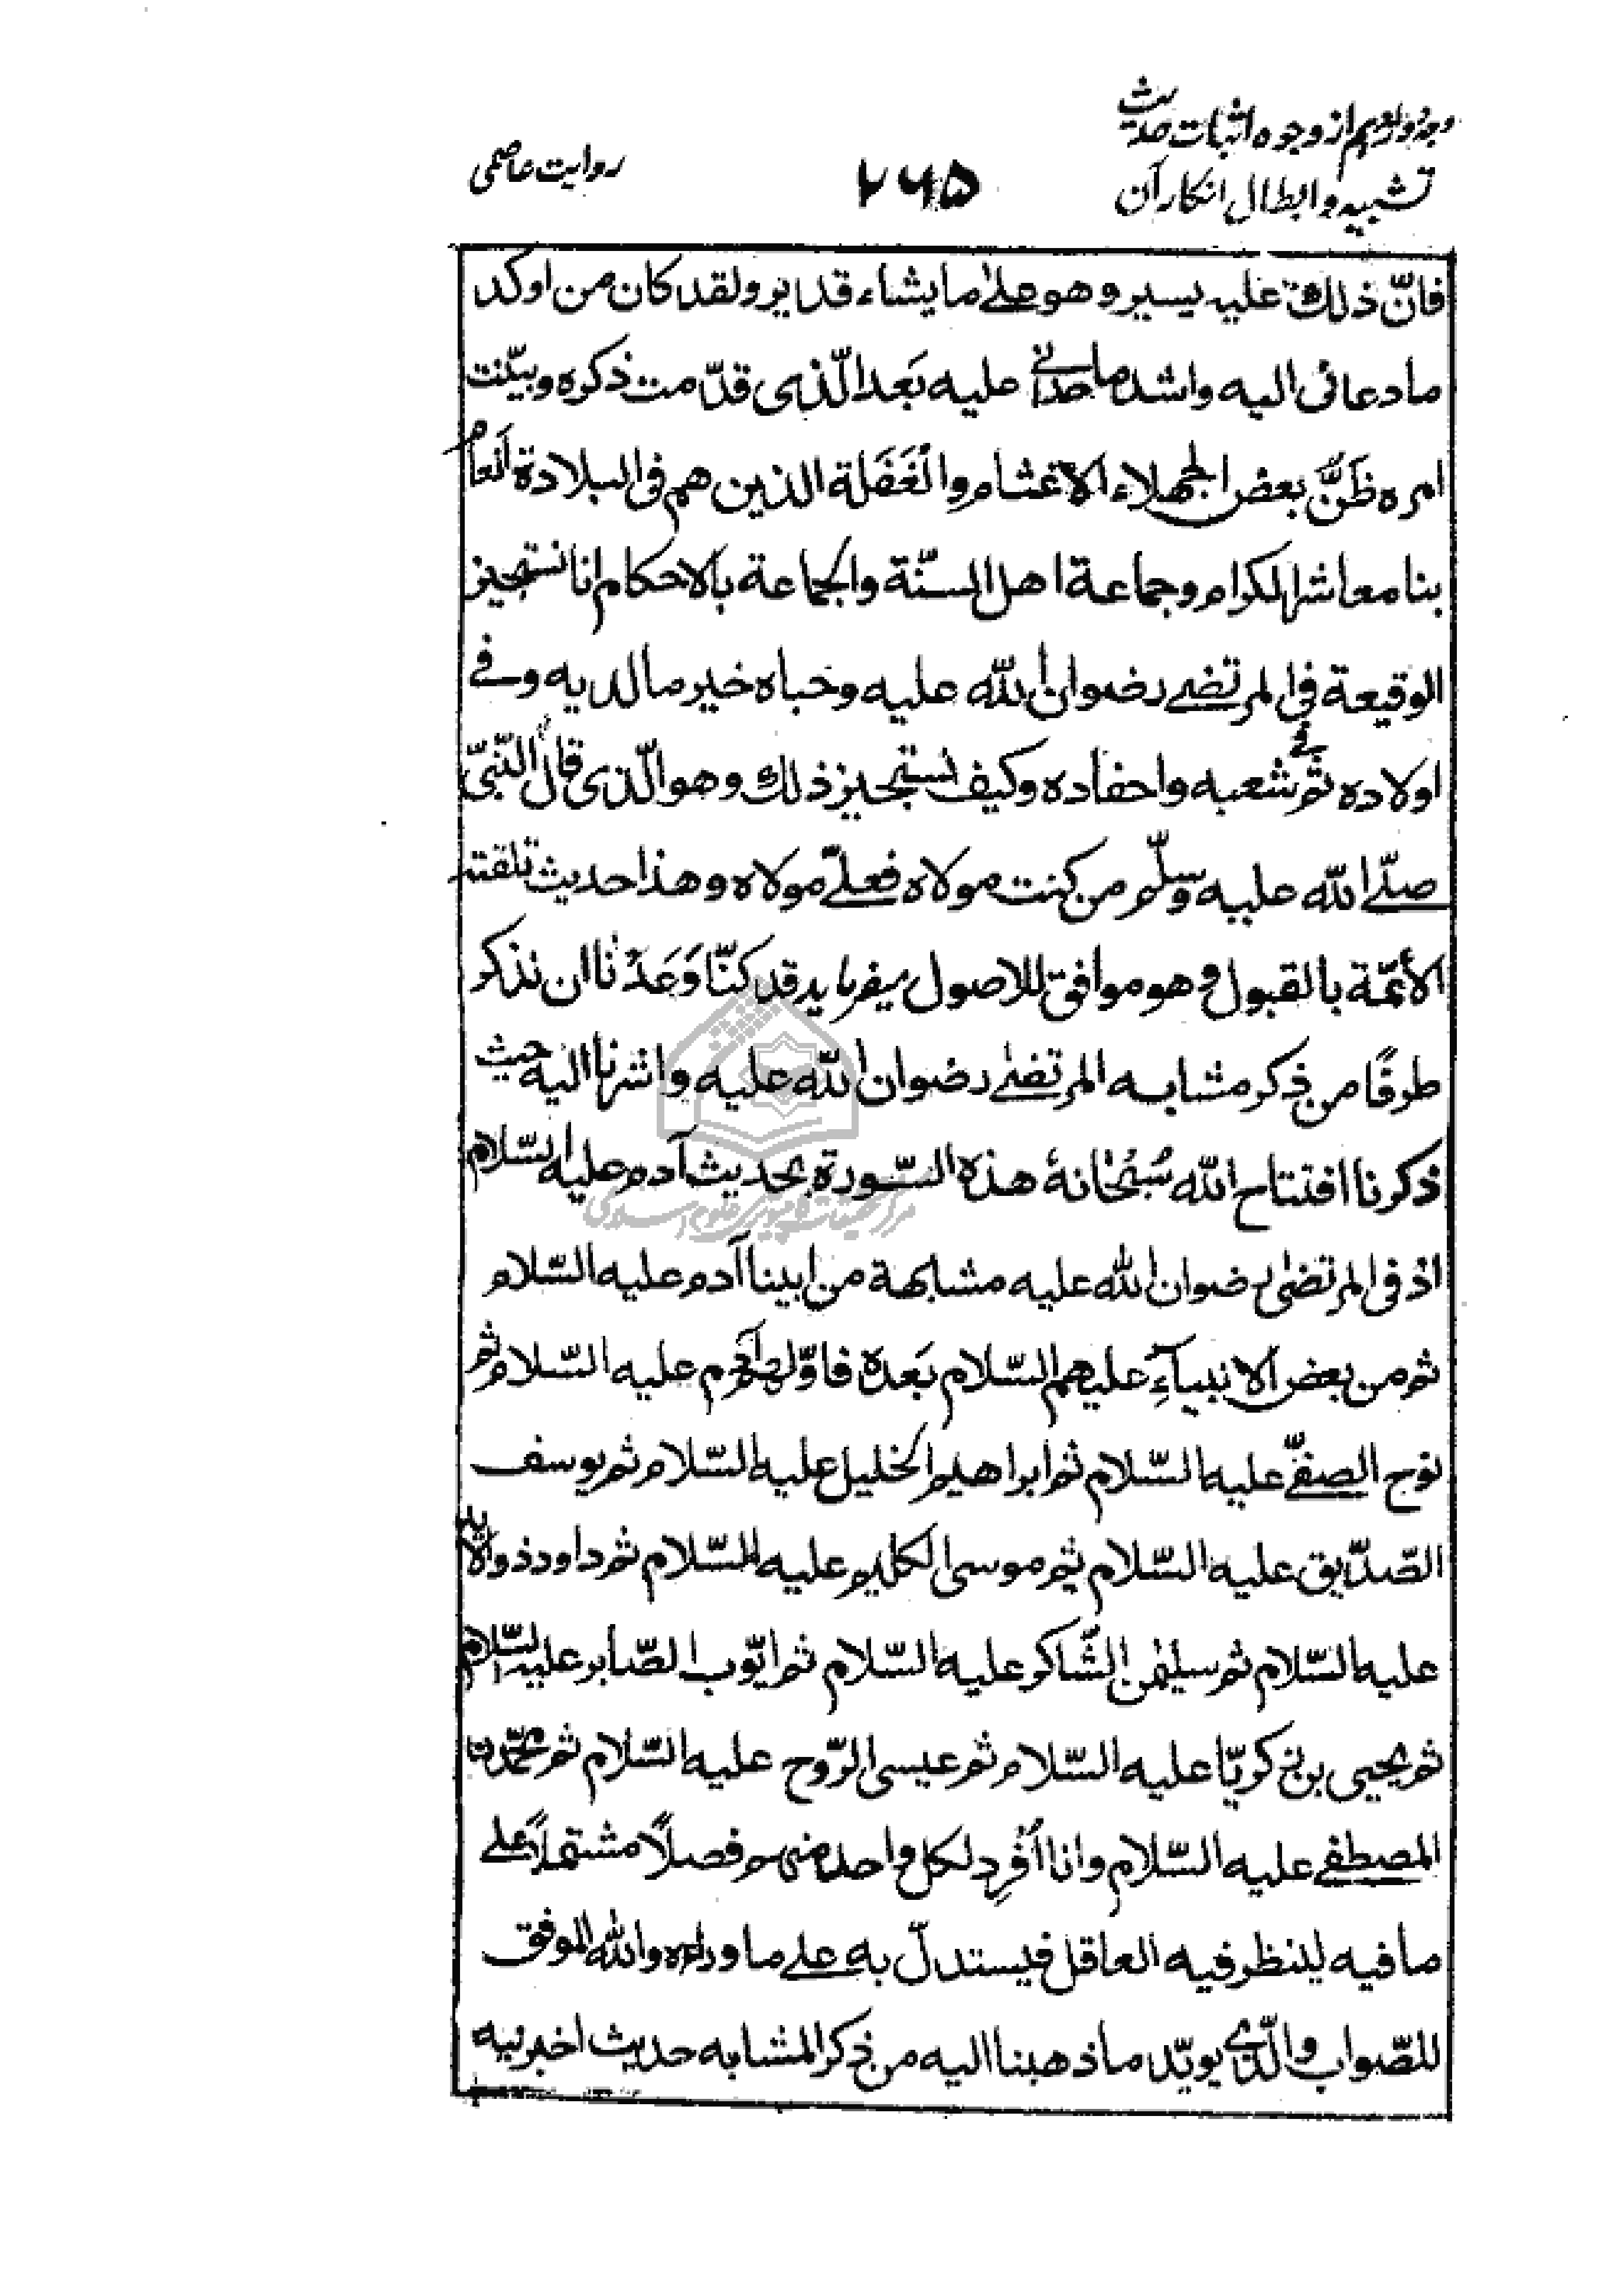 وجه دوازدهم از وجوه اثبات حدیث
تشبیه و ابطال انکار آن
۲۶۵
روایت عاصمی
فانّ ذلك علیه یسیر وهو علی ما یشاء قدیر ولقد کان من اوکد
ما دعانی الیه واشد ما حدانی علیه بَعد الّذی قدّمت ذکره وبیّنت
امره ظَنَّ بعض الجهلاء الاغشام والغَفَلة الذین هم فی البلادة انعام
بنا معاشر الکرام وجماعة اهل السنّة والجماعة بالاحکام انا نستجیز
الوقیعة فی المرتضی رضوان الله علیه وحباه خیر ما لدیه وفی
اولاده ثم فی شعبه واحفاده وکیف نستجیز ذلك وهو الّذی قال النّبیّ
صلّی الله علیه وسلّم من کنت مولاه فعلیّ مولاه وهذا حدیث تلقته
الأئمّة بالقبول وهو موافق للاصول میفرماید قد کنّا وَعَدْنا ان نذکر
طرفًا من ذکر مشابه المرتضی رضوان الله علیه واشرنا الیه حیث
ذکرنا افتتاح الله سُبْحَانهٗ هذه السّورة بحدیث آدم علیه السّلام
اذ فی المرتضی رضوان الله علیه مشابهة من ابینا آدم علیه السّلام
ثم من بعض الانبیآءِ علیهم السّلام بَعده فاوّلهم آدم علیه السّلام ثم
نوح الصفیّ علیه السّلام ثم ابراهیم الخلیل علیه السّلام ثم یوسف
الصّدّیق علیه السّلام ثم موسی الکلیم علیه السّلام ثم داود ذو الاید
علیه السّلام ثم سلیمٰن الشّاکر علیه السّلام ثم ایّوب الصّابر علیه السّلام
ثم یحیی بن زکریّا علیه السّلام ثم عیسی الرّوح علیه السّلام ثم محمّدنا
المصطفی علیه السّلام وانا اُفْرِد لکل واحد منهم فصلاً مشتملاً علی
ما فیه لینظر فیه العاقل فیستدلّ به علی ما وراءه والله الموفق
للصّواب والّذی یویّد ما ذهبنا الیه من ذکر المشابه حدیث اخبرنیه
مرکز تحقیقات کامپیوتری علوم اسلامی